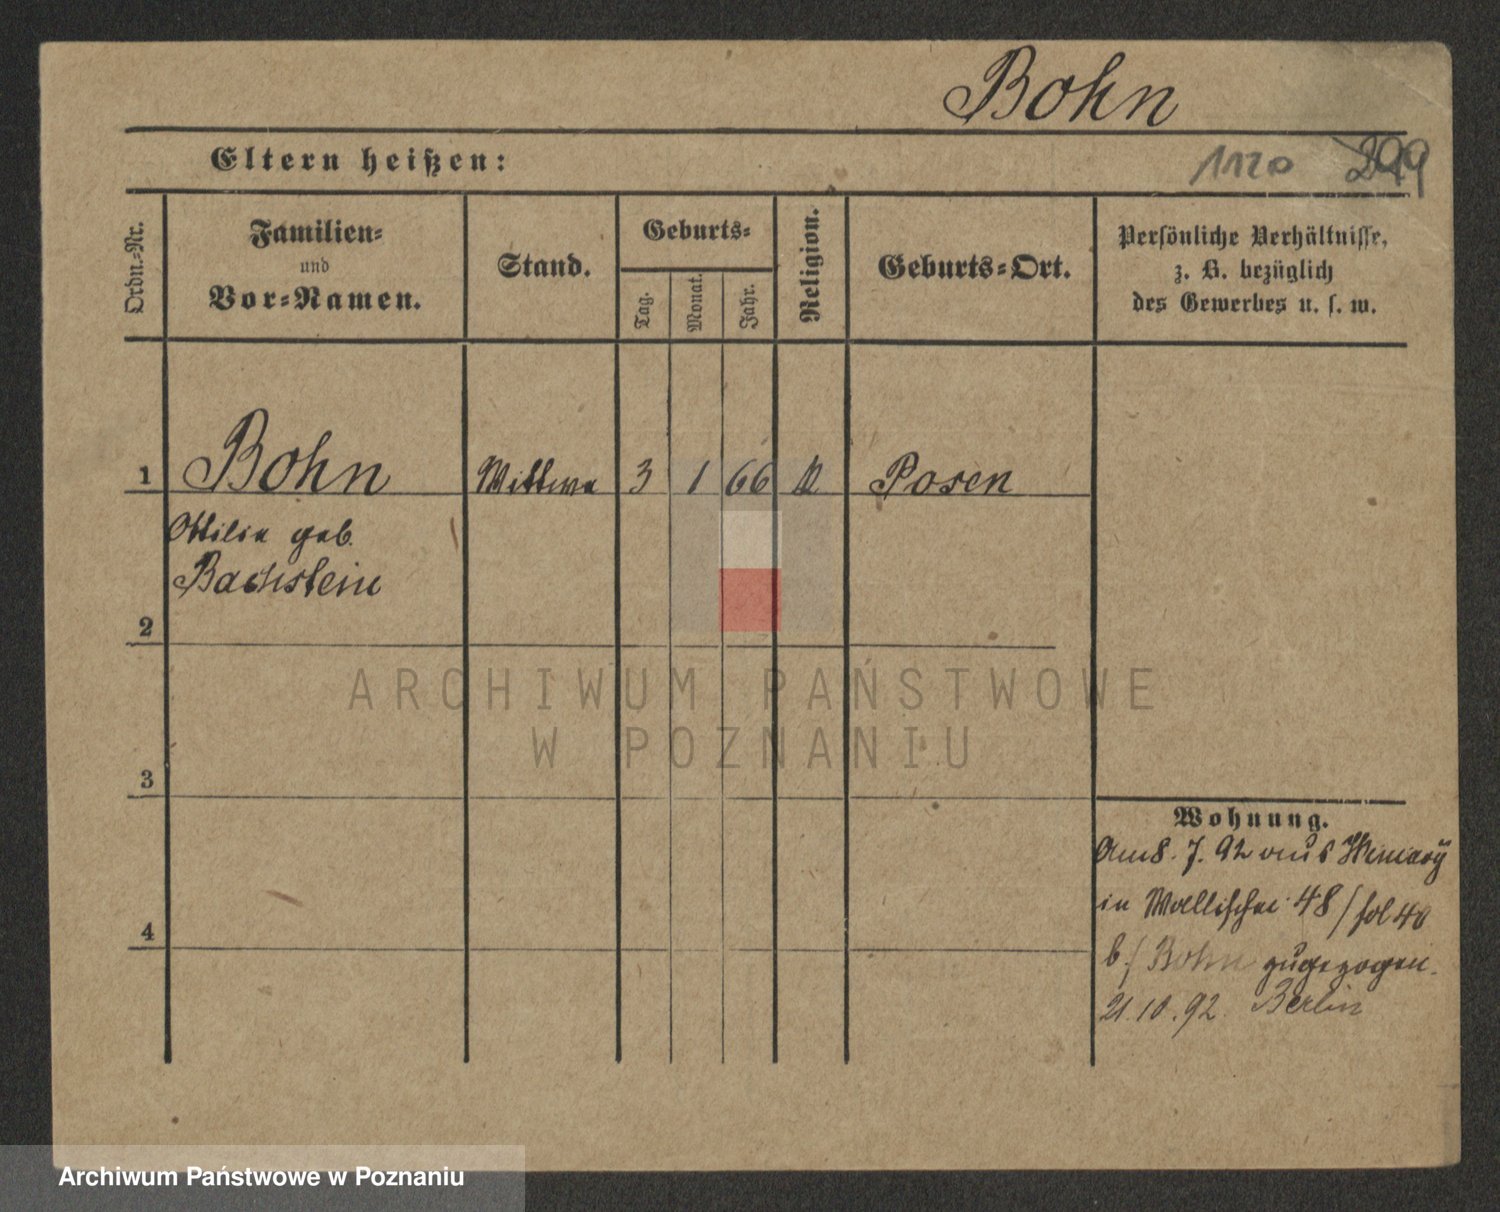 Bohn
Eltern heißen:
1120 299
Ordn.-Nr.
Familien-
und
Vor-Namen.
Stand.
Geburts-
Tag.
Monat.
Jahr.
Religion.
Geburts-Ort.
Persönliche Verhältnisse,
z. B. bezüglich
des Gewerbes u. s. w.
1 Bohn Wittwe 3 1 66 Posen
Ottilie geb.
Bachstein
2
ARCHIWUM PAŃSTWOWE
W POZNANIU
3
4
Wohnung.
Am 8. 7. 92 aus
in Wallischei 48 / fol 40
b/ Bohn zugezogen.
21.10.92. Berlin
Archiwum Państwowe w Poznaniu